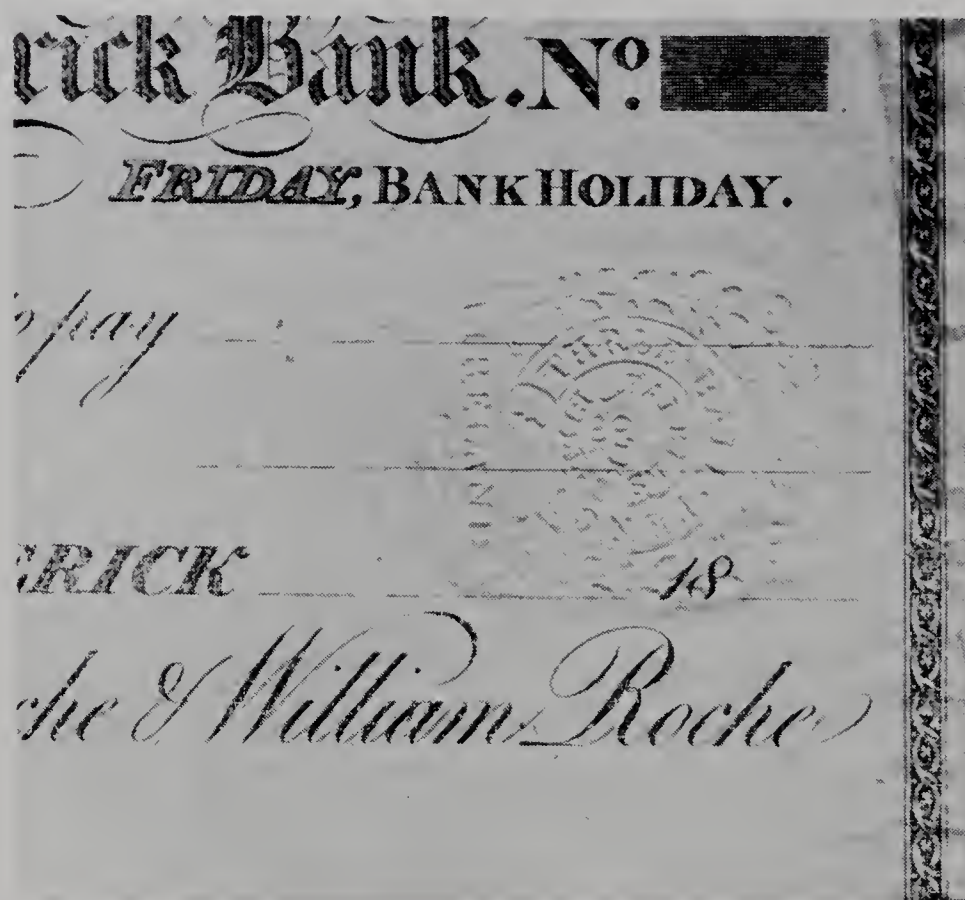 rick Bank. Nº
FRIDAY, BANK HOLIDAY.
o pay
THREE
RICK 18
che & William Roche